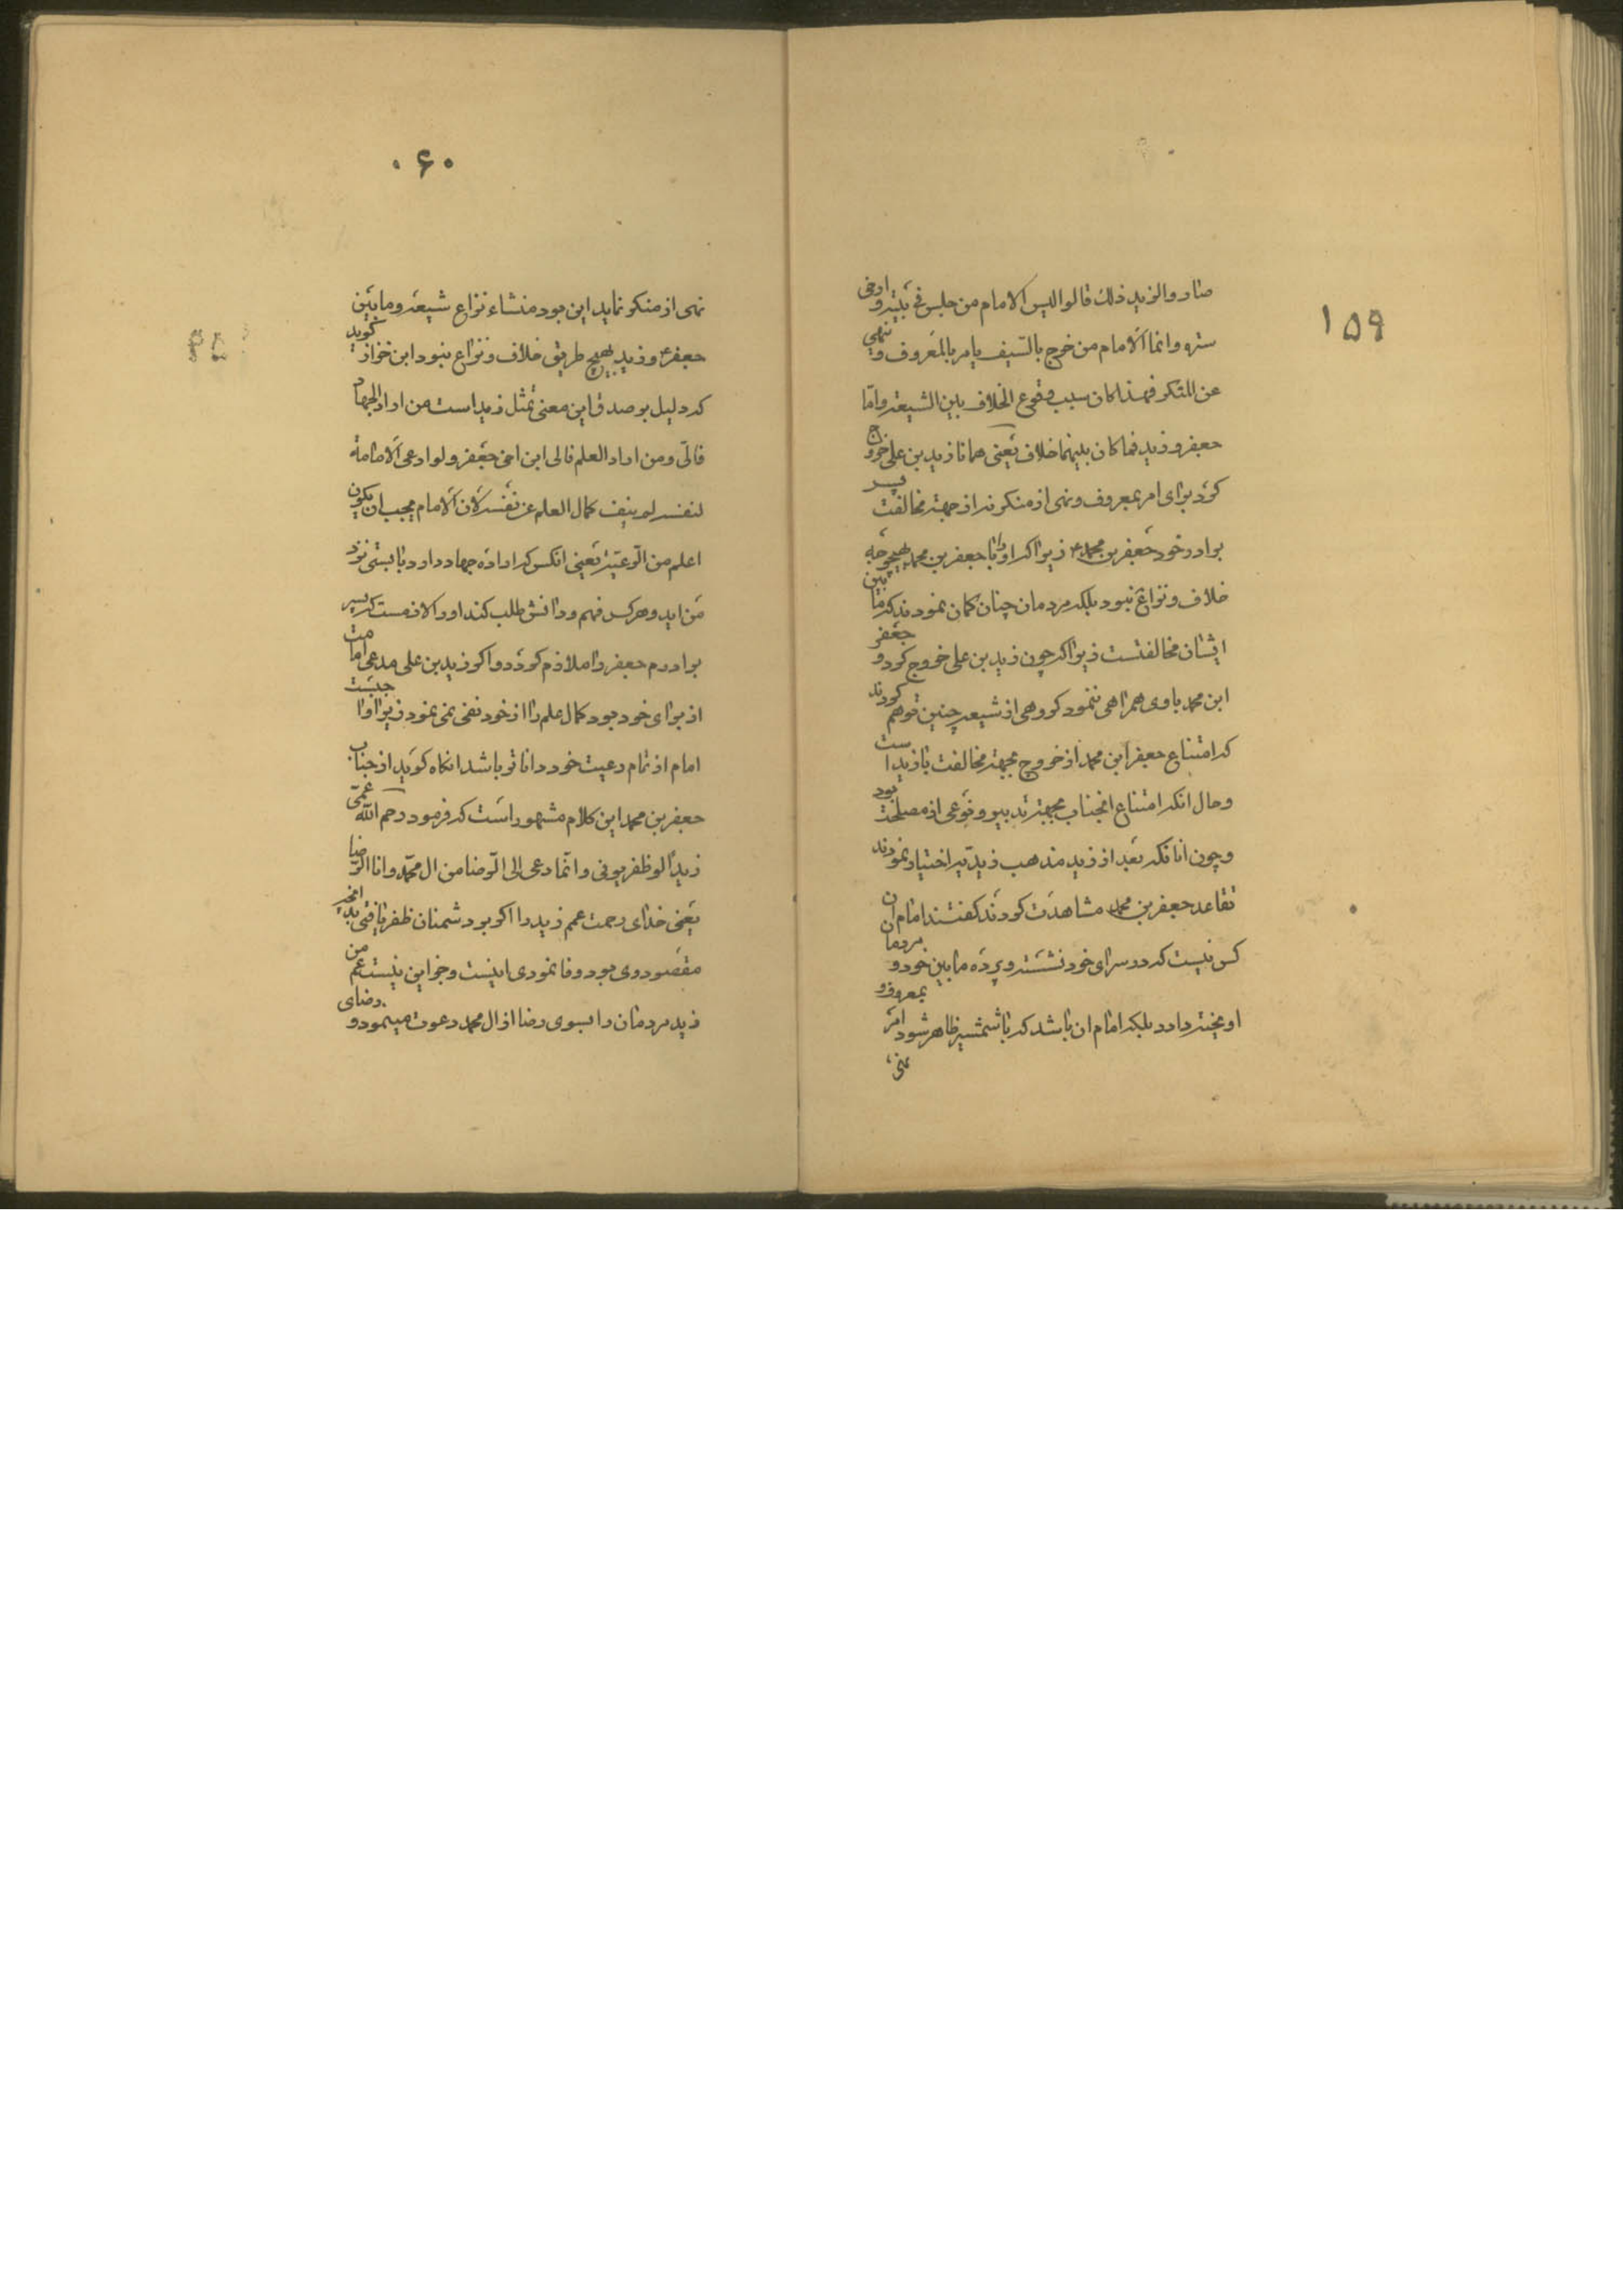 ۱۵۹
صار والزیدیذلك قالوا لیس الامام من جلس فی بیته و ارخی
ستره وانما الامام من خرج بالسّیف یامر بالمعروف و ینهی
عن المنکر فهذا کان سبب وقوع الخلاف بین الشیعة وامّا
جعفر و زید فما کان بینهما خلاف یعنی همانا زید بن علی خروج
کرد برای امر بمعروف و نهی از منکر نه از جهة مخالفت پسر
برادر خود جعفر بن محمد ع زیرا که او را با جعفر بن محمد بهیچوجه
خلاف و نزاع نبود بلکه مردمان چنان کمان نمودند که ما بین
ایشان مخالفتست زیرا که چون زید بن علی خروج کرد و جعفر
ابن محمد باوی همراهی ننمود کروهی از شیعه چنین توهم کردند
که امتناع جعفر ابن محمد از خروج بجهة مخالفت با زید است
و حال انکه امتناع انجناب بجهة تدبیر و نوعی از مصلحت بود
و چون انانکه بعد از زید مذهب زیدیه اختیار نمودند
تقاعد جعفر بن محمد مشاهدت کردند کفتند امام ان
کس نیست که در سرای خود نشسته و پرده ما بین خود و مردمان
اویخته دارد بلکه امام ان باشد که با شمشیر ظاهر شود امر بمعروف و
نهی
۰۶۰
نهی از منکر نماید این بود منشاء نزاع شیعه و ما بین
جعفر ع و زید بهیچ طریق خلاف و نزاع نبود ابن خزاز کوید
که دلیل بر صدق این معنی تمثل زید است من اراد الجهاد
فالیّ و من اراد العلم فالی ابن اخی جعفر و لو ادعی الامامة
لنفسه لم ینف کمال العلم عن نفسه لان الامام یجب ان یکون
اعلم من الرّعیّة یعنی انکس که اراده جهاد دارد بایستی نزد
من اید و هر کس فهم و دانش طلب کند او را لازمست که پسر
برادرم جعفر را ملازم کردد و اکر زید بن علی مدعی امامت
از برای خود بود کمال علم را از خود نفی نمی نمود زیرا واجبست
امام از تمام رعیت خود دانا تر باشد انکاه کوید از جناب
جعفر بن محمد این کلام مشهور است که فرمود رحم اللّه عمّی
زیداً لو ظفر یوفی و انّما دعی الی الرّضا من ال محمّد و انا الرّضا
یعنی خدای رحمت عمم زید را اکر بر دشمنان ظفر یافتی بدانچه
مقصود وی بود وفا نمودی اینست و جز این نیست عم من
زید مردمان را بسوی رضا از ال محمد دعوت مینمود و رضای